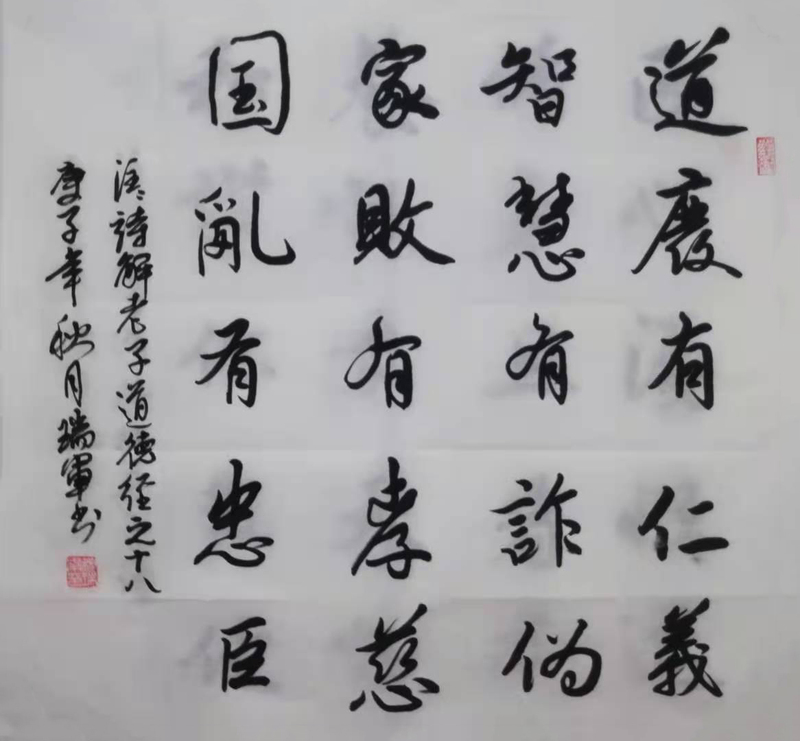 道废有仁義
智慧有詐伪
家敗有孝慈
国亂有忠臣
诗解老子道德经之十八
庚子年秋月瑞軍书